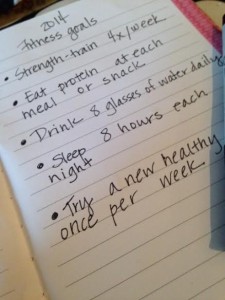 2014
fitness goals
• Strength-train 4x/week
• Eat protein at each
meal or snack
• Drink 8 glasses of water daily
• Sleep 8 hours each
night
• Try a new healthy
once per week